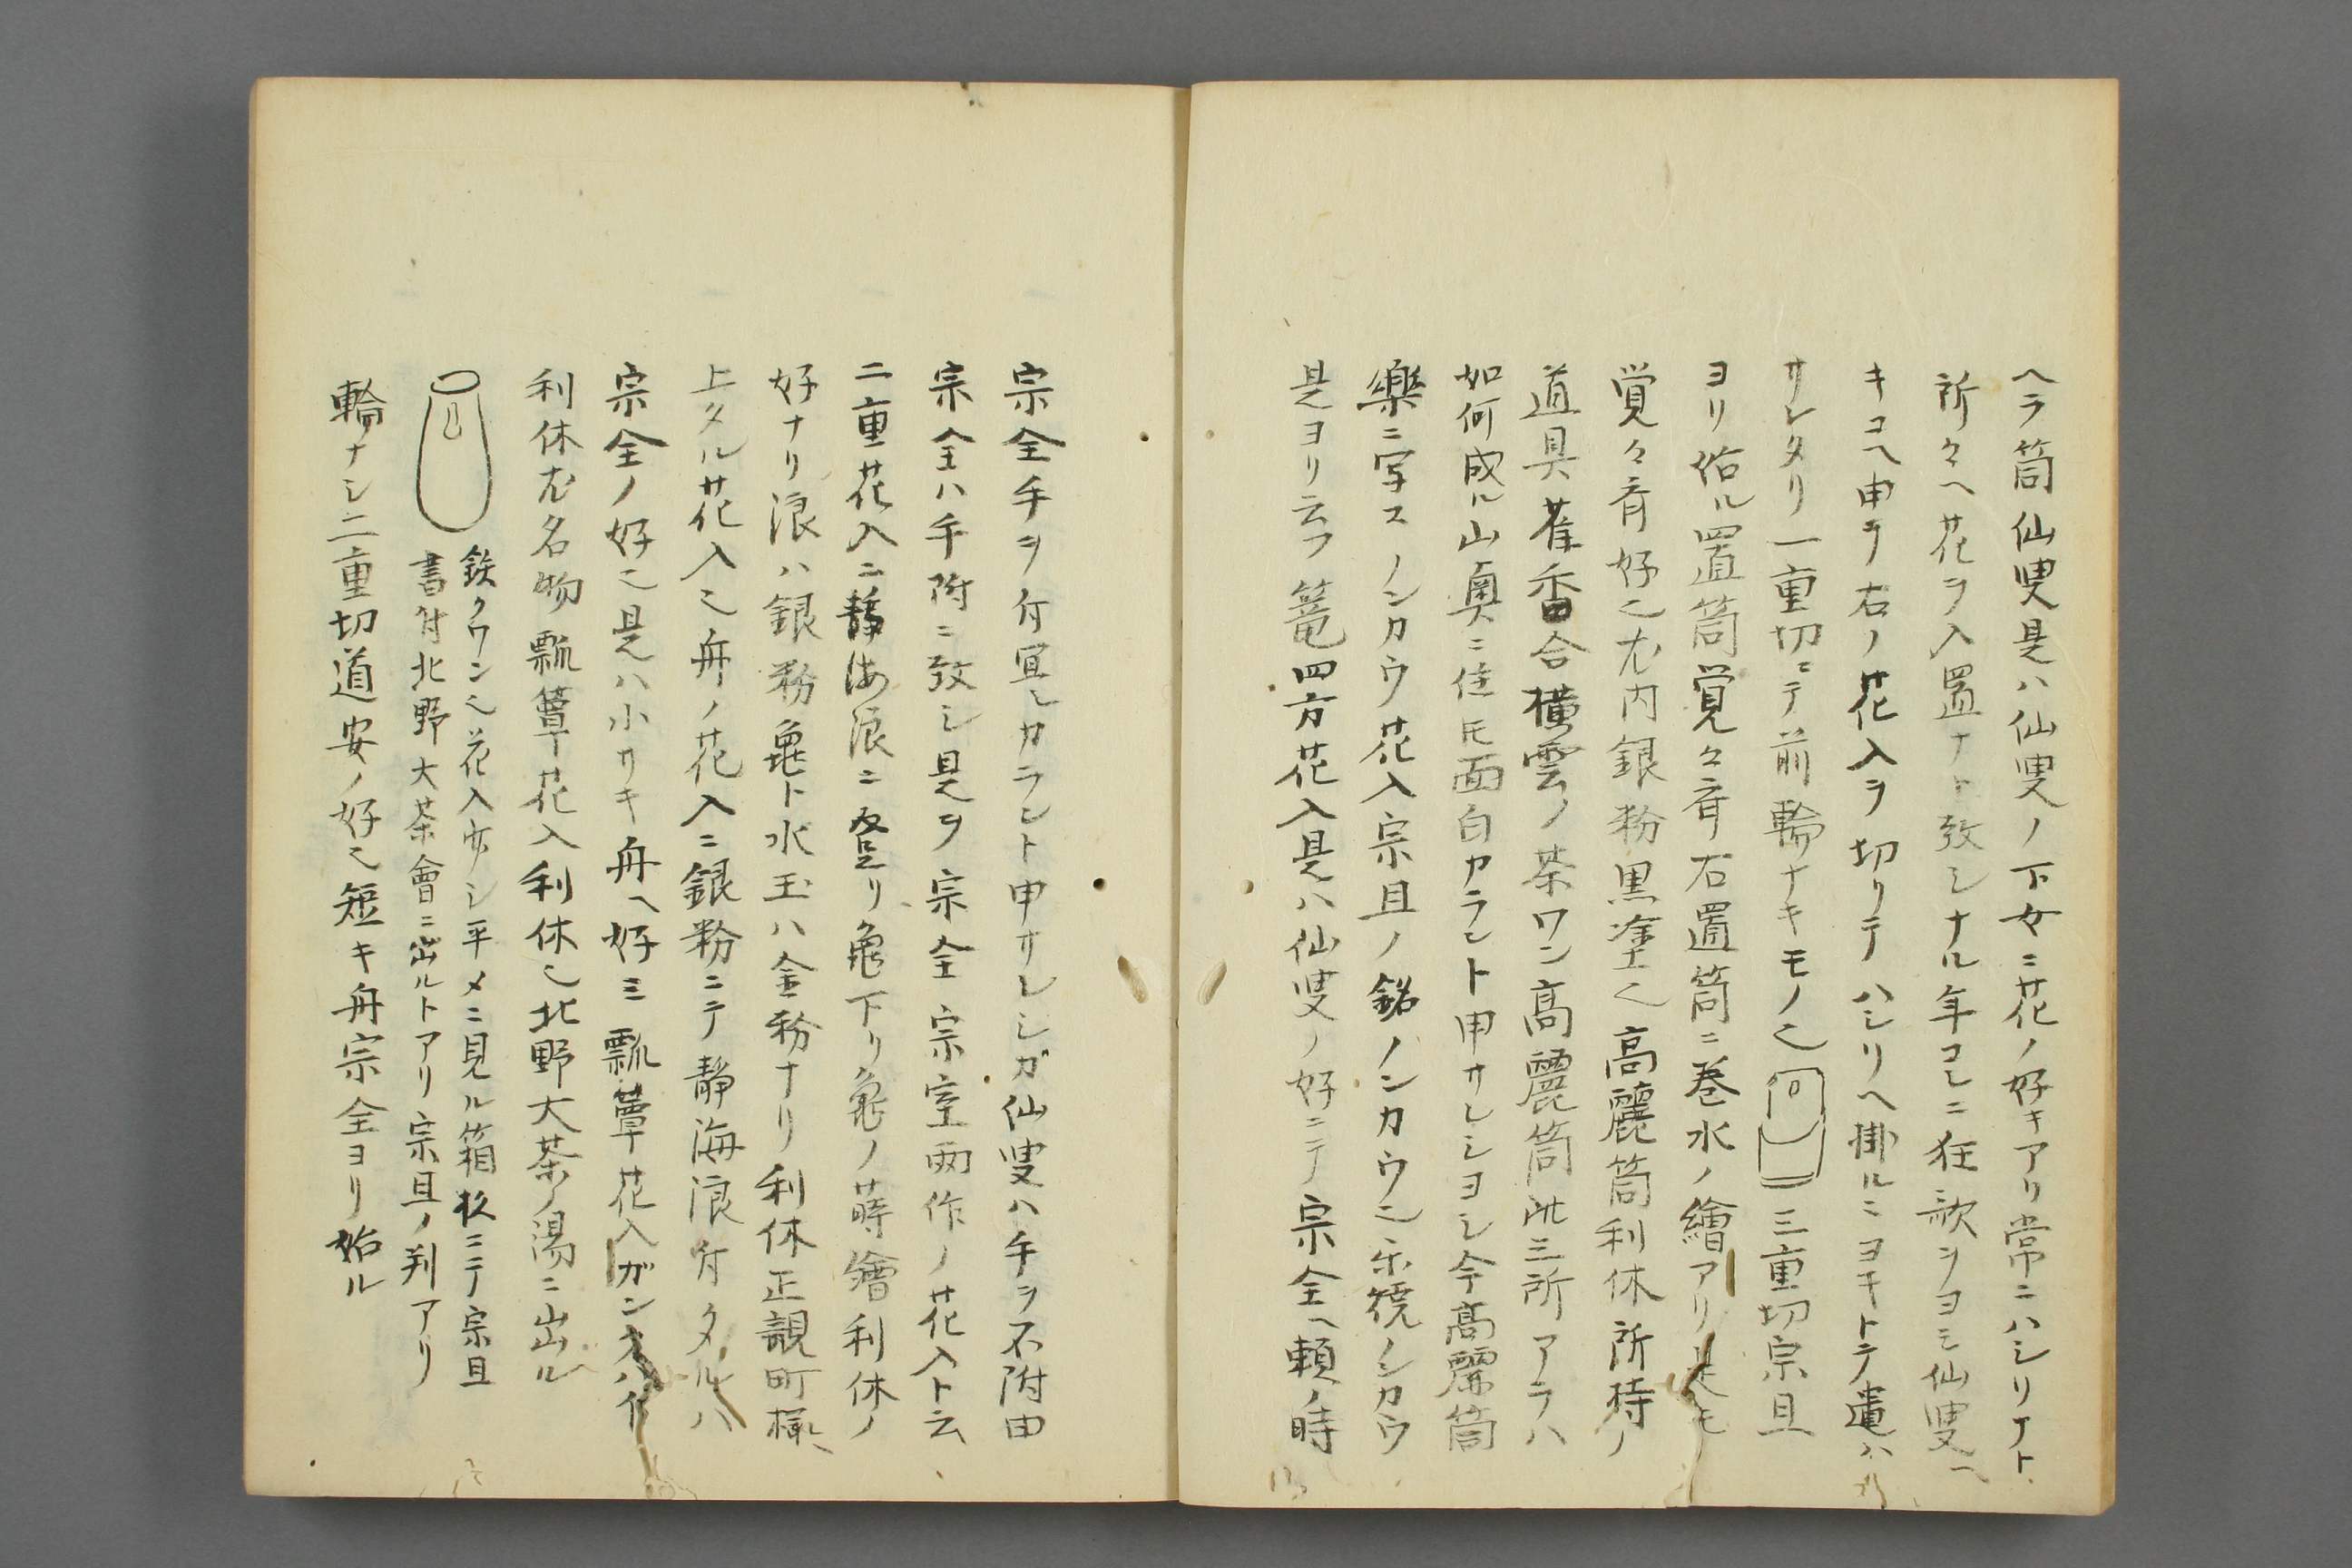 ヘラ筒仙叟是ハ仙叟ノ下女ニ花ノ好キアリ常ニハシリナト
所々ヘ花ヲ入置ナト致シナル年コレニ狂歌ヲヨミ仙叟ヘ
キコヘ申ヲ右ノ花入ヲ切リテハシリヘ掛ルニヨキトテ遣ハ
サレタリ一重切ニテ前輪ナキモノ也三重切宗旦
ヨリ始ル置筒覚々斎右置筒ニ巻水ノ繪アリ是モ
覚々斎好也尤内銀粉黒塗也高麗筒利休所持ノ
道具蓷香合横雲ノ茶ワン高麗筒此三所アラハ
如何成ル山奥ニ住ㇳモ面白カラント申サレシヨシ今高麗筒
樂ニ写スノンカウ花入宗旦ノ銘ノンカウ也樂焼ノンカウ
是ヨリ云フ篭四方花入是ハ仙叟ノ好ニテ宗全ヘ頼ノ時
宗全手ヲ付冝シカラント申サレシガ仙叟ハ手ヲ不附由
宗全ハ手附ニ致シ見ヲ宗全宗室両作ノ花入ト云
二重花入ニ静海浪ニ登リ亀下リ亀ノ蒔繪利休ノ
好ナリ浪ハ銀粉亀ト水玉ハ金粉ナリ利休正親町様ヘ
上タル花入也舟ノ花入ニ銀粉ニテ静海浪付タルハ
宗全ノ好也是ハ小サキ舟ヘ好ミ瓢簞花入ガン
利休尤名物瓢簞花入利休也北野大茶ノ湯ニ出ル
鉄クワン也花入少シ平メニ見ル箱杉ニテ宗旦
書付北野大茶會ニ出ルトアリ宗旦ノ判アリ
輪ナシ二重切道安ノ好也短キ舟宗全ヨリ始ル